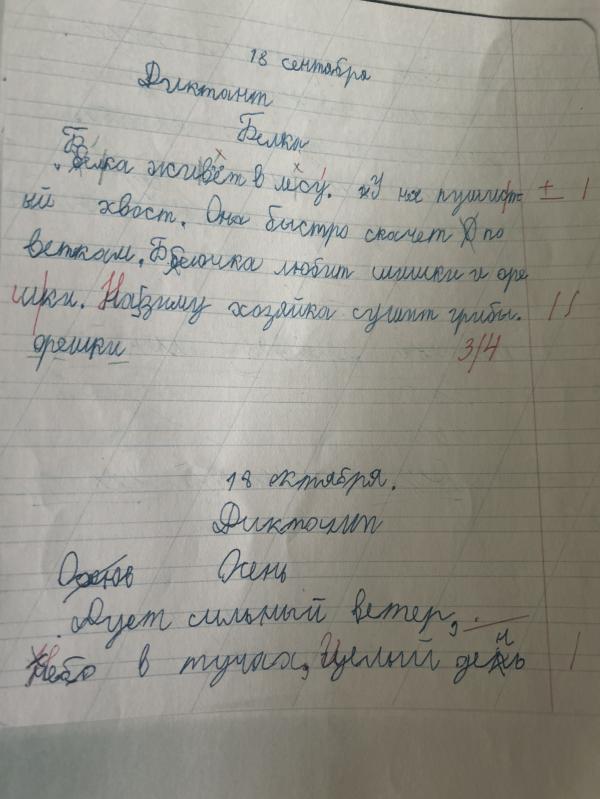 18 сентября
Диктант
Белка
Белка живёт в лесу. У неё пушист- ± 1
ый хвост. Она быстро скачет по
веткам. Белочка любит шишки и оре
шки. На зиму хозяйка сушит грибы. 11
орешки 3/4
18 октября.
Диктант
Осень
Дует сильный ветер,
Небо в тучах, Целый день 1